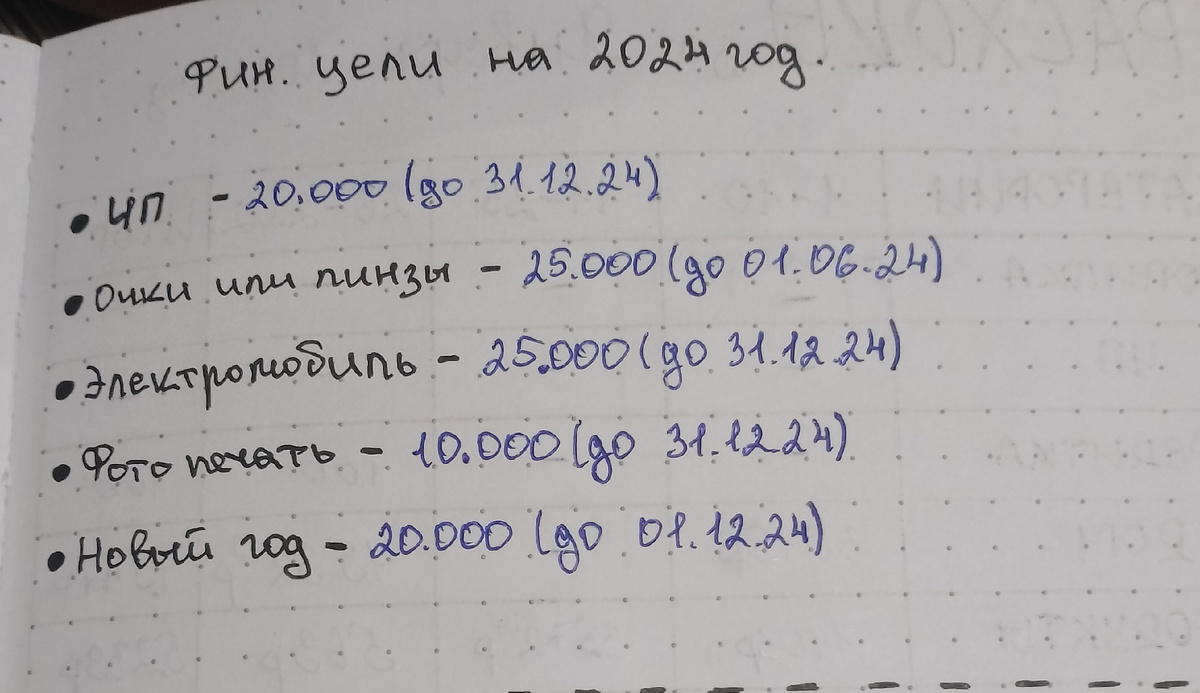 Фин. цели на 2024 год.
• ЧП - 20.000 (до 31.12.24)
• Очки или линзы - 25.000 (до 01.06.24)
• Электромобиль - 25.000 (до 31.12.24)
• Фото печать - 10.000 (до 31.12.24)
• Новый год - 20.000 (до 01.12.24)